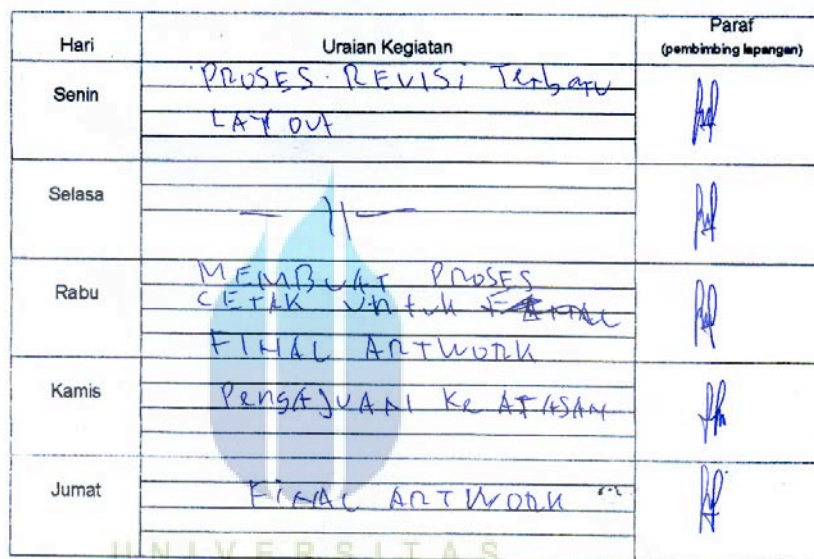 Hari Uraian Kegiatan Paraf
(pembimbing lapangan)
Senin PROSES REVISI Terbaru
LAY OUT
Selasa — 11 —
Rabu MEMBUAT PROSES
CETAK Untuk
FINAL ARTWORK
Kamis PengAJUAN Ke ATASAN
Jumat FINAL ARTWORK
UNIVERSITAS